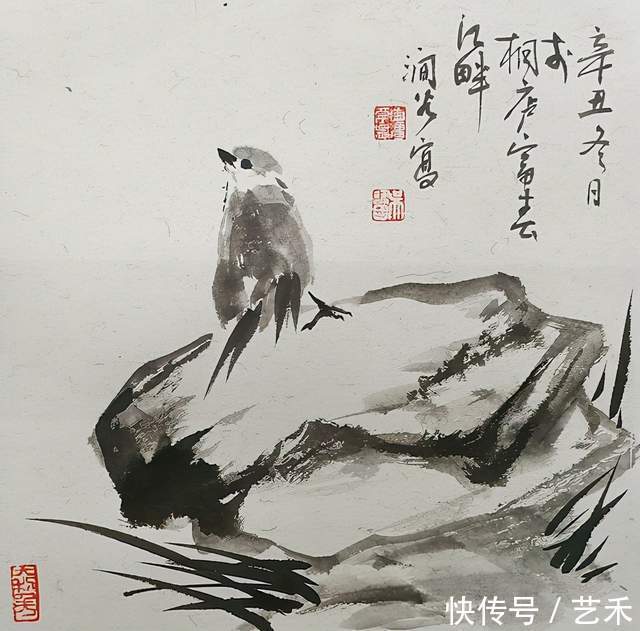 辛丑冬月
於
桐庐富春
江畔
涧谷寫
快传号 / 艺禾